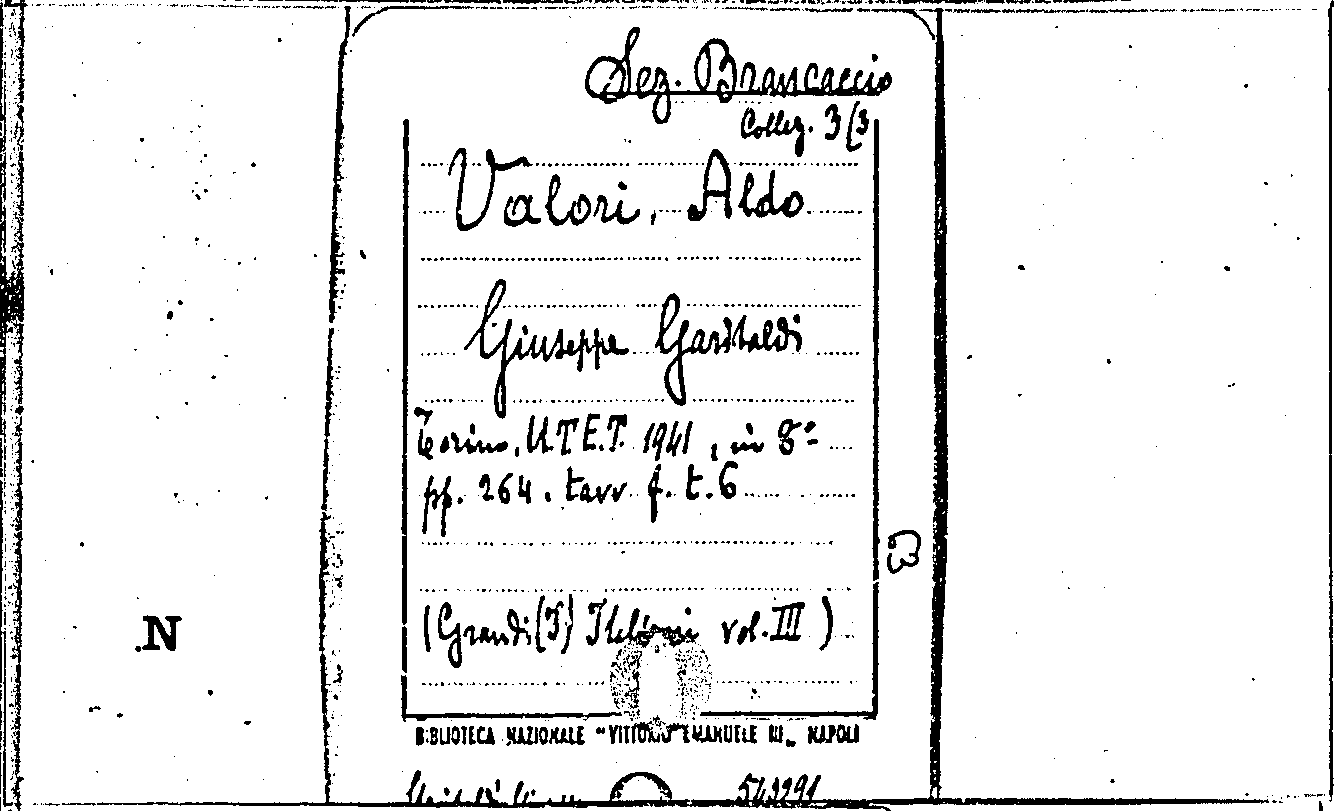 Sez. Brancaccio
Collez. 3/3
Valori, Aldo
Giuseppe Garibaldi
Torino, U.T.E.T. 1941, in 8º
pp. 264. tavv. f. t. 6
(Grandi (I) Italiani vol. III)
N
BIBLIOTECA NAZIONALE "VITTORIO EMANUELE III" NAPOLI